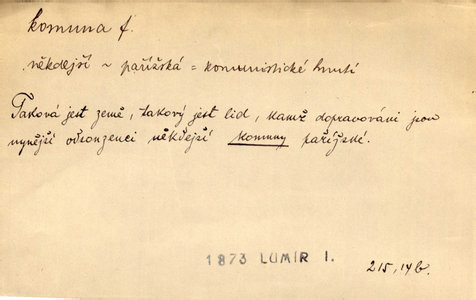 komuna f.
někdejší ~ pařížská = komunistické hnutí
Taková jest země, takový jest lid, kamž dopravováni jsou
nynější odsouzenci někdejší komuny pařížské.
1873 LUMÍR I.
215, 14b.